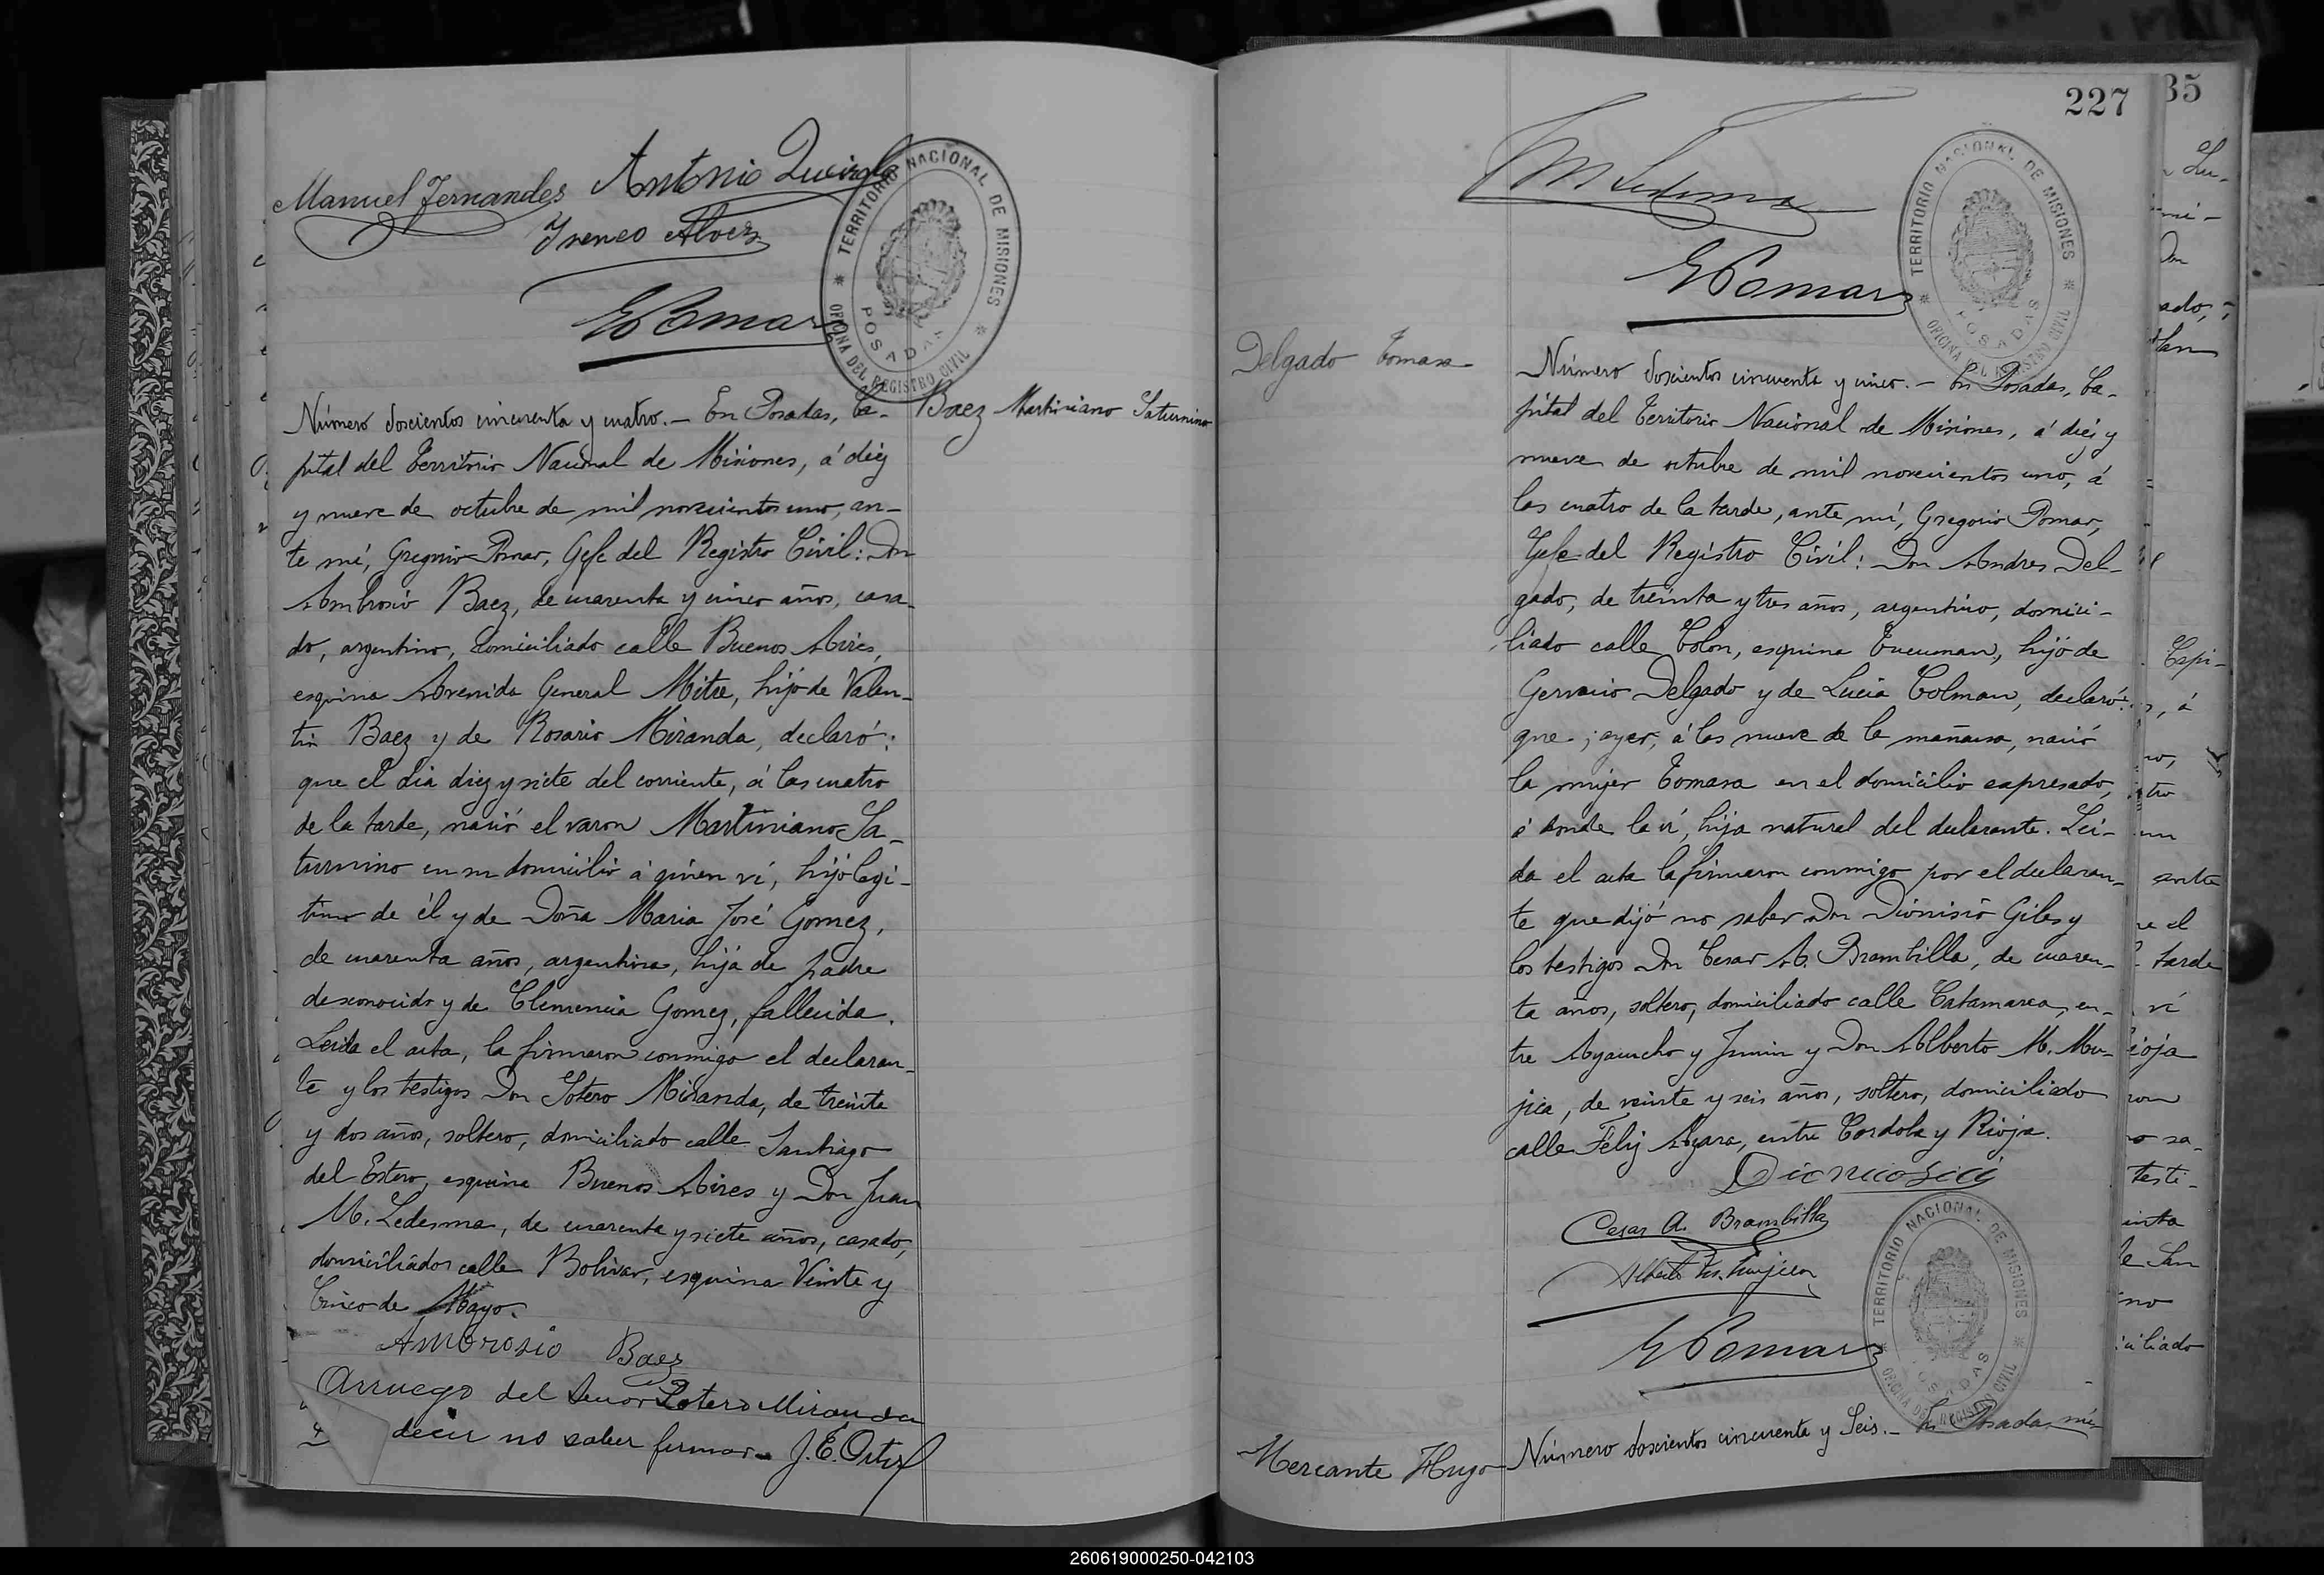 Manuel Fernandes Antonio Queirolo
Ireneo Alvez
TERRITORIO NACIONAL DE MISIONES
OFICINA DEL REGISTRO CIVIL
POSADAS
G Pomar
Baez Martiniano Saturnino
Número doscientos cincuenta y cuatro.- En Posadas, Ca-
pital del Territorio Nacional de Misiones, á diez
y nueve de octubre de mil novecientos uno, an-
te mí, Gregorio Pomar, Gefe del Registro Civil: Don
Ambrosio Baez, de cuarenta y cinco años, casa-
do, argentino, domiciliado calle Buenos Aires,
esquina Avenida General Mitre, hijo de Valen-
tin Baez y de Rosario Miranda, declaró:
que el dia diez y siete del corriente, á las cuatro
de la tarde, nació el varon Martiniano Sa-
turnino en su domicilio á quien ví, hijo legi-
timo de él y de Doña Maria José Gomez,
de cuarenta años, argentina, hija de padre
desconocido y de Clemencia Gomez, fallecida.
Leida el acta, la firmaron conmigo el declaran-
te y los testigos Don Sotero Miranda, de treinta
y dos años, soltero, domiciliado calle Santiago
del Estero, esquina Buenos Aires y Don Juan
M. Ledesma, de cuarenta y siete años, casado,
domiciliados calle Bolivar, esquina Veinte y
Cinco de Mayo.
Ambrosio Baez
Arruego del Senor Sotero Miranda
decir no saber firmar J.E. Ortiz
227
35
J M Ledesma
TERRITORIO NACIONAL DE MISIONES
OFICINA DEL REGISTRO CIVIL
POSADAS
G Pomar
Delgado Tomasa
Número doscientos cincuenta y cinco.- En Posadas, Ca-
pital del Territorio Nacional de Misiones, á diez y
nueve de octubre de mil novecientos uno, á
las cuatro de la tarde, ante mí, Gregorio Pomar,
Gefe del Registro Civil: Don Andres Del-
gado, de treinta y tres años, argentino, domici-
liado calle Colon, esquina Tucuman, hijo de
Gervacio Delgado y de Lucia Colman, declaró:
que, ayer, á las nueve de la mañana, nació
la mujer Tomasa en el domicilio espresado,
á donde la ví, hija natural del declarante. Lei-
da el acta la firmaron conmigo por el declaran-
te que dijó no saber Don Dionisio Giles y
los testigos Don Cesar A. Brambilla, de cuaren-
ta años, soltero, domiciliado calle Catamarca, en-
tre Ayacucho y Junin y Don Alberto M. Mu-
jica, de veinte y seis años, soltero, domiciliado
calle Feliz Azara, entre Cordoba y Rioja.
Cesar A. Brambilla
Alberto M. Mujica
G Pomar
TERRITORIO NACIONAL DE MISIONES
OFICINA DEL REGISTRO CIVIL
POSADAS
Mercante Hugo
Número doscientos cincuenta y Seis.- En Posadas,
260619000250-042103